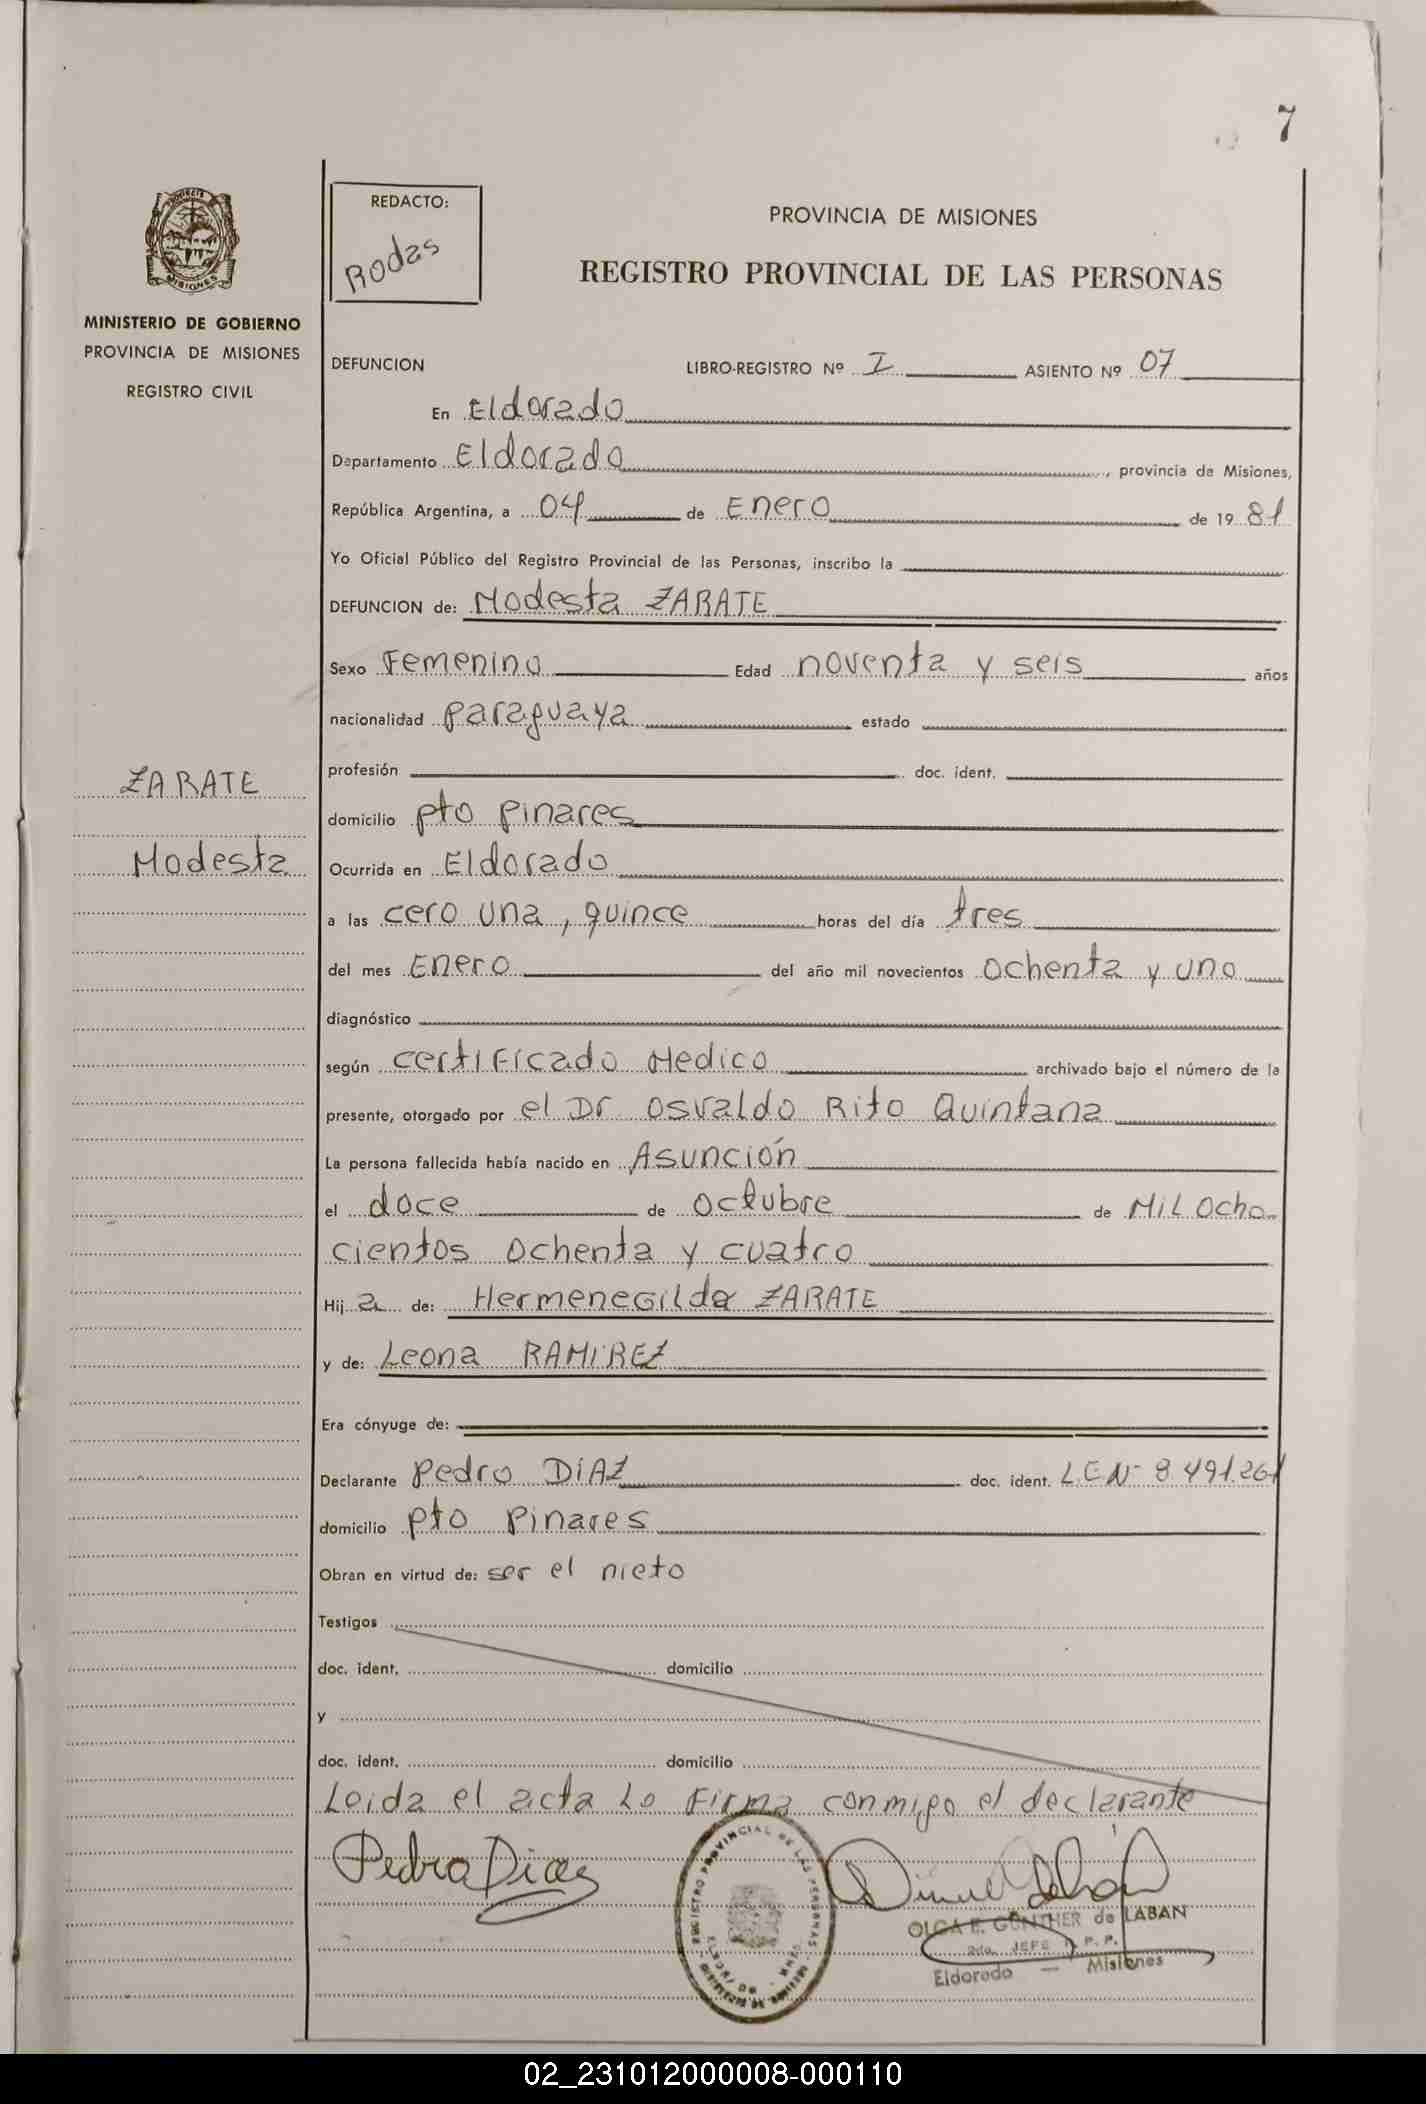 7
REDACTO:
Rodas
PROVINCIA DE MISIONES
REGISTRO PROVINCIAL DE LAS PERSONAS
MISIONES
MINISTERIO DE GOBIERNO
PROVINCIA DE MISIONES
REGISTRO CIVIL
DEFUNCION LIBRO-REGISTRO Nº I ASIENTO Nº 07
En Eldorado
Departamento Eldorado, provincia de Misiones,
República Argentina, a 04 de Enero de 19 81
Yo Oficial Público del Registro Provincial de las Personas, inscribo la
DEFUNCION de: Modesta ZARATE
Sexo Femenino Edad noventa y seis años
nacionalidad paraguaya estado
profesión doc. ident.
ZARATE
domicilio pto pinares
Modesta
Ocurrida en Eldorado
a las cero una, quince horas del día tres
del mes Enero del año mil novecientos ochenta y uno
diagnóstico
según certificado Medico archivado bajo el número de la
presente, otorgado por el Dr Osvaldo Rito Quintana
La persona fallecida había nacido en Asunción
el doce de octubre de Mil Ocho
cientos ochenta y cuatro
Hij a de: Hermenegilda ZARATE
y de: Leona RAMIREZ
Era cónyuge de:
Declarante Pedro DIAZ doc. ident. L.E Nº 8.491.261
domicilio pto Pinares
Obran en virtud de: ser el nieto
Testigos
doc. ident. domicilio
y
doc. ident. domicilio
Leida el acta Lo Firma conmigo el declarante
Pedro Diaz
REGISTRO PROVINCIAL DE LAS PERSONAS
OLGA E. GÜNTHER de LABAN
2da. JEFE R. P. P.
Eldorado — Misiones
02_231012000008-000110